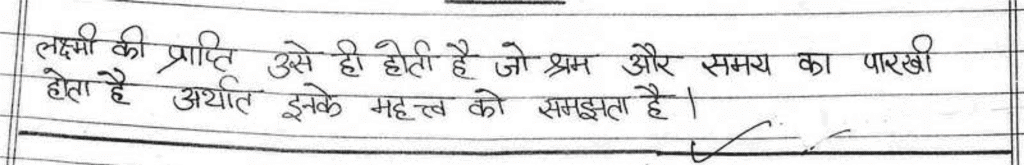 लक्ष्मी की प्राप्ति उसे ही होती है जो श्रम और समय का पारखी
होता है अर्थात इनके महत्त्व को समझता है।